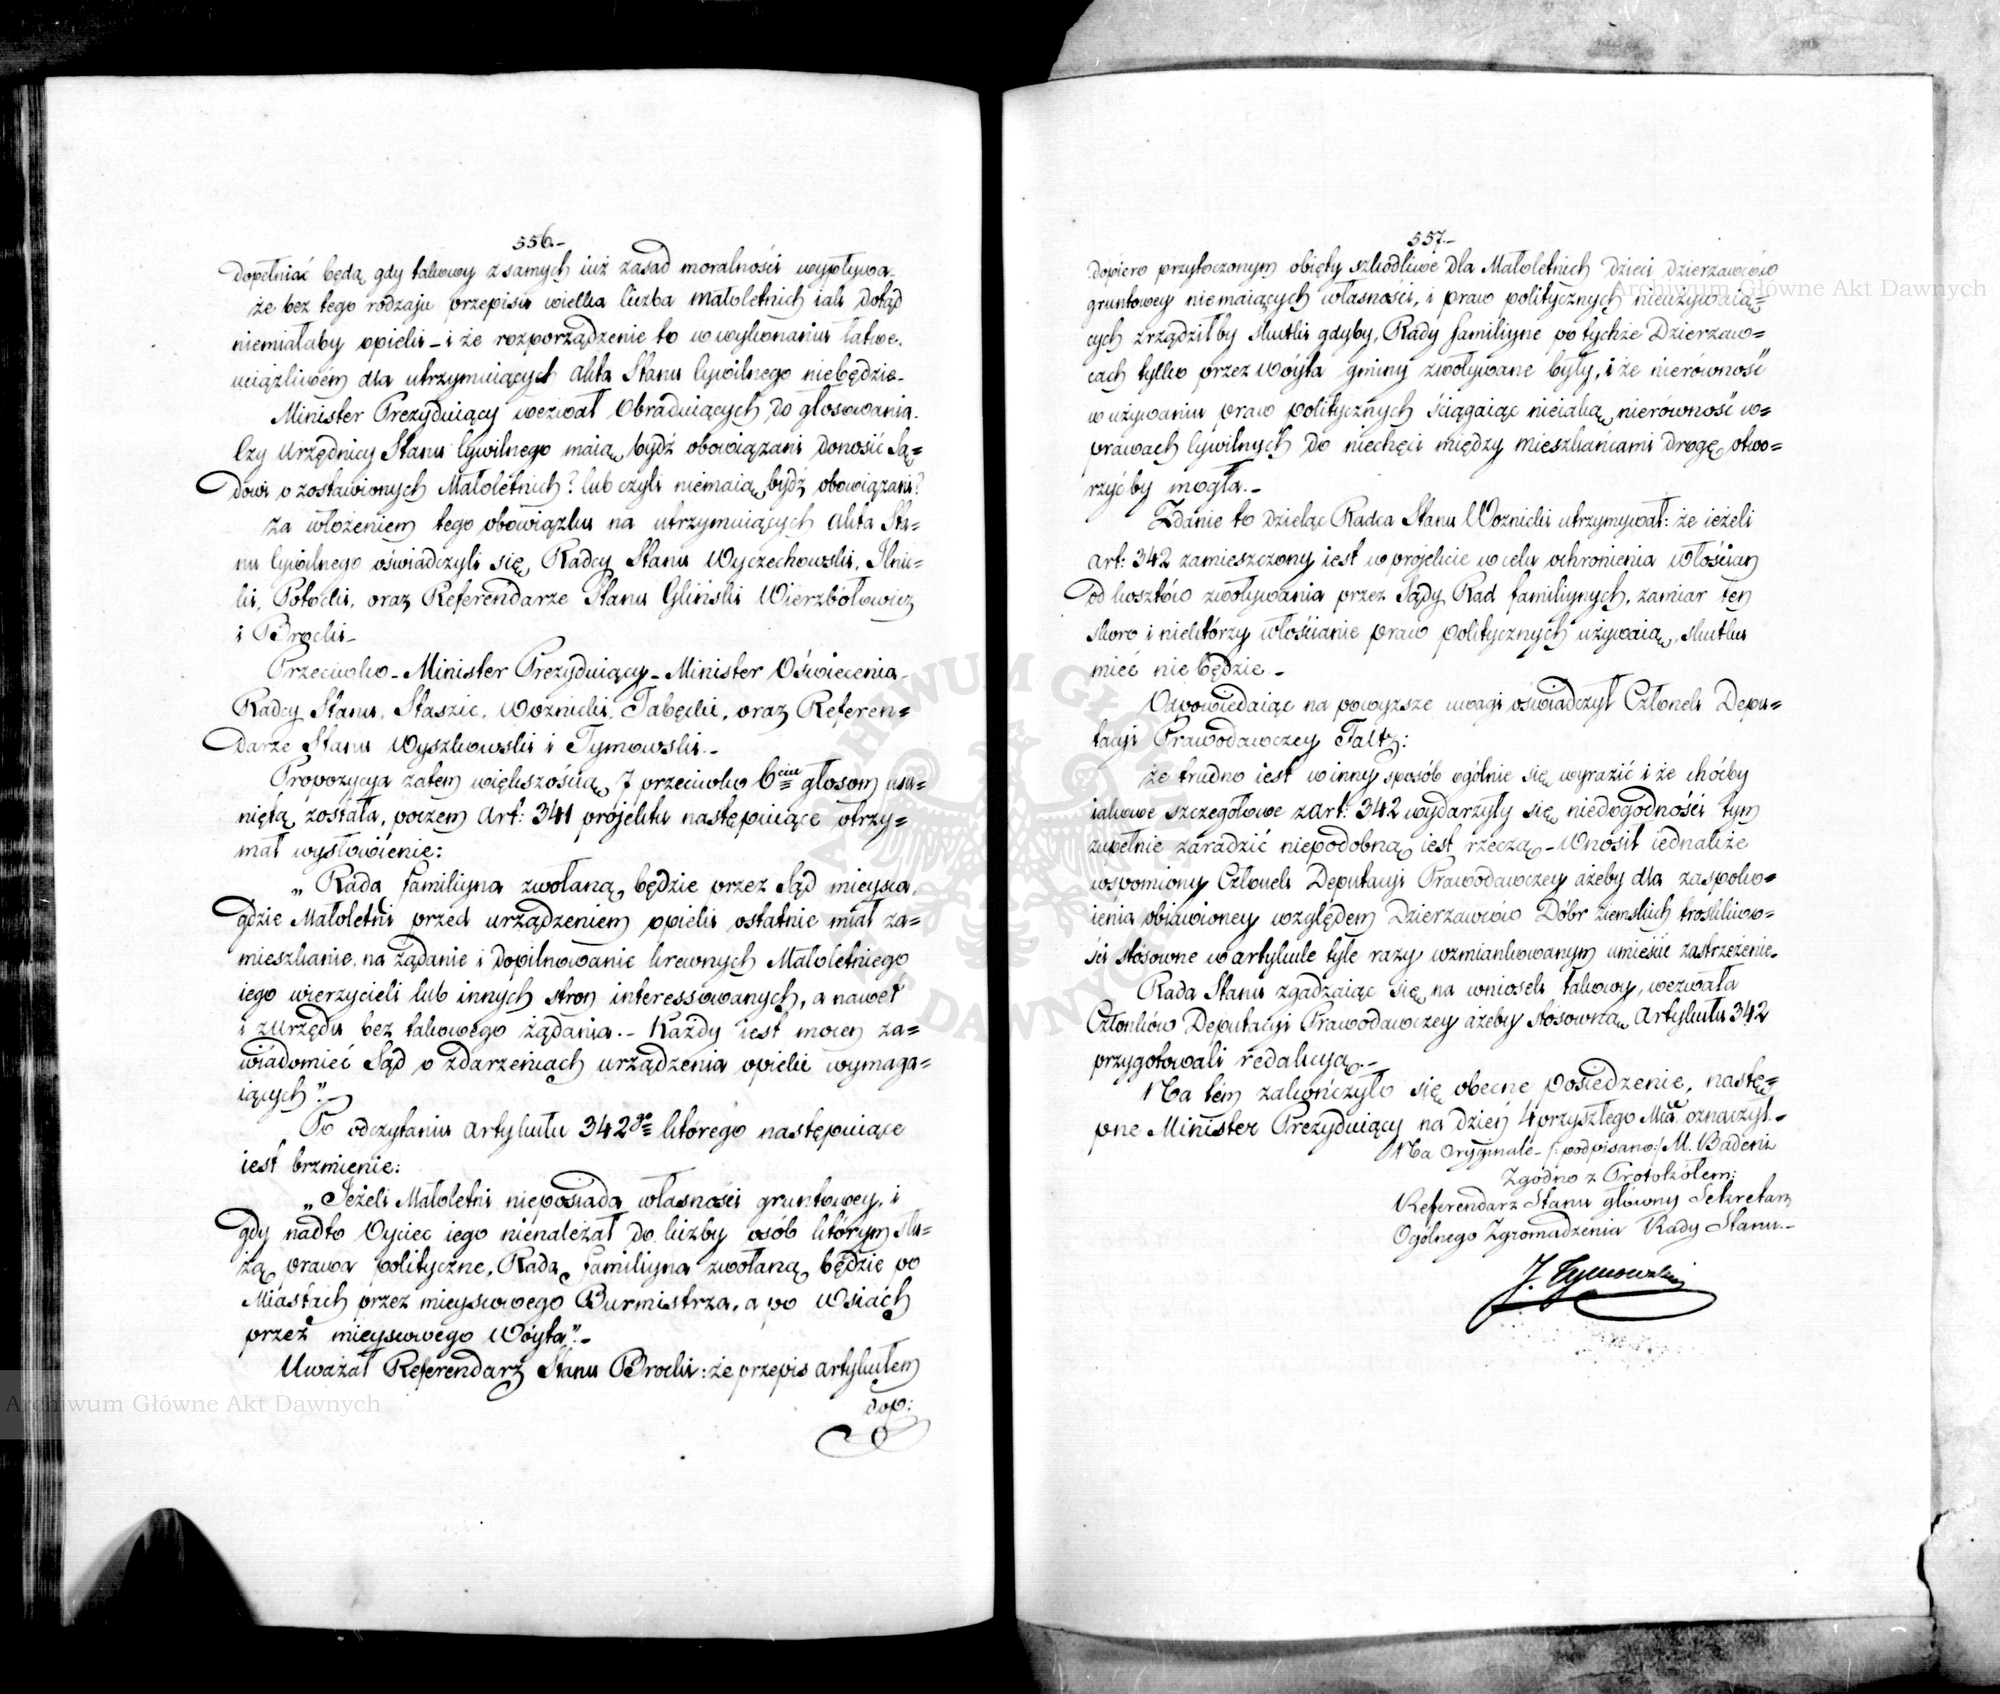 556.-
dopełniać będą, gdy takowy z samych iuż zasad moralności wypływa_
że bez tego rodzaju przepisu wielka liczba małoletnich iak dotąd
niemiałaby opieki_ i że rozporządzenie to w wykonaniu łatwe,
uciążliwem dla utrzymuiących akta Stanu Cywilnego niebędzie_
Minister Prezyduiący wezwał Obraduiących do głosowania.
Czy Urzędnicy Stanu Cywilnego maią bydź obowiązani donosić Są=
dowi o zostawionych Małoletnich? lub czyli niemaią bydź obowiązani?
Za włożeniem tego obowiązku na utrzymuiących akta Sta=
nu Cywilnego oświadczyli się, Radcy Stanu Wyczechowski, Ilnic=
ki, Potocki, oraz Referendarze Stanu Gliński Wierzbołowicz
i Brocki_
Przeciwko_ Minister Prezyduiący_ Minister Oświecenia_
Radcy Stanu, Staszic, Woznicki, Tabęcki, oraz Referen=
darze Stanu Wyszkowski i Tymowski._
Propozycya zatem większością 7 przeciwko 6ciu głosom usu=
niętą została, poczem art: 341 projektu następuiące otrzy=
mał wysłowienie:
„Rada familiyna zwołaną będzie przez Sąd mieysca,
gdzie Małoletni przed urządzeniem opieki ostatnie miał za=
mieszkanie, na żądanie i dopilnowanie krewnych Małoletniego
iego wierzycieli lub innych stron interessowanych, a nawet
i z urzędu bez takowego żądania._ Każdy iest mocen za=
wiadomić Sąd o zdarzeniach urządzenia opieki wymaga=
iących"._
Po odczytaniu artykułu 342go którego następuiące
iest brzmienie:
„Jeżeli Małoletni nieposiada własności gruntowey, i
gdy nadto Oyciec iego nienależał do liczby osób którym słu=
żą prawa polityczne, Rada familiyna zwołaną będzie po
Miastach przez mieyscowego Burmistrza, a po Wsiach
przez mieyscowego Wóyta"._
Uważał Referendarz Stanu Brocki: że przepis artykułem
dop:
557.-
dopiero przytoczonym obięty szkodliwe dla Małoletnich dzieci dzierzawców
gruntowey niemaiących własności, i praw politycznych nieużywaią=
cych zrządziłby skutki gdyby, Rady familiyne po tychże Dzierzaw=
cach tylko przez Wóyta gminy zwoływane były, i że nierówność
w używaniu praw politycznych ściągaiąc nieiaką nierówność w=
prawach Cywilnych do niechęci między mieszkańcami drogę otwo=
rzyćby mogła._
Zdanie to dzieląc Radca Stanu Woznicki utrzymywał: że ieżeli
art: 342 zamieszczony iest w projekcie w celu ochronienia Włościan
od kosztów zwoływania przez Sądy Rad familiynych, zamiar ten
skoro i niektórzy włościanie praw politycznych używaią, skutku
mieć nie będzie._
Odpowiedaiąc na powyzsze uwagi oświadczył Członek Depu=
tacyi Prawodawczey Faltz:
że trudno iest w inny sposób ogólnie się wyrazić i że choćby
iakowe szczegółowe z art: 342 wydarzyły się niedogodności tym
zupełnie zaradzić niepodobną iest rzeczą_ Wnosił iednakże
wspomiony Członek Deputacyi Prawodawczey ażeby dla zaspoko=
ienia obiawioney względem Dzierzawców Dóbr ziemskich troskliwo=
ści stosowne w artykule tyle razy wzmiankowanym umieścić zastrzeżenie.
Rada Stanu zgadzaiąc się na wniosek takowy, wezwała
Członków Deputacyi Prawodawczey ażeby stosowną artykułu 342
przygotowali redakcyą._
Na tém zakończyło się obecne posiedzenie, nastę=
pne Minister Prezyduiący na dzień 4 przyszłego Mca oznaczył._
Na Oryginale_ /: podpisano:/ M. Badeni
Zgodno z Protokółem:
Referendarz Stanu główny Sekretarz
Ogólnego Zgromadzenia Rady Stanu._
J. Tymowski
Archiwum Główne Akt Dawnych
Archiwum Główne Akt Dawnych
ARCHIWUM GŁÓWNE AKT DAWNYCH